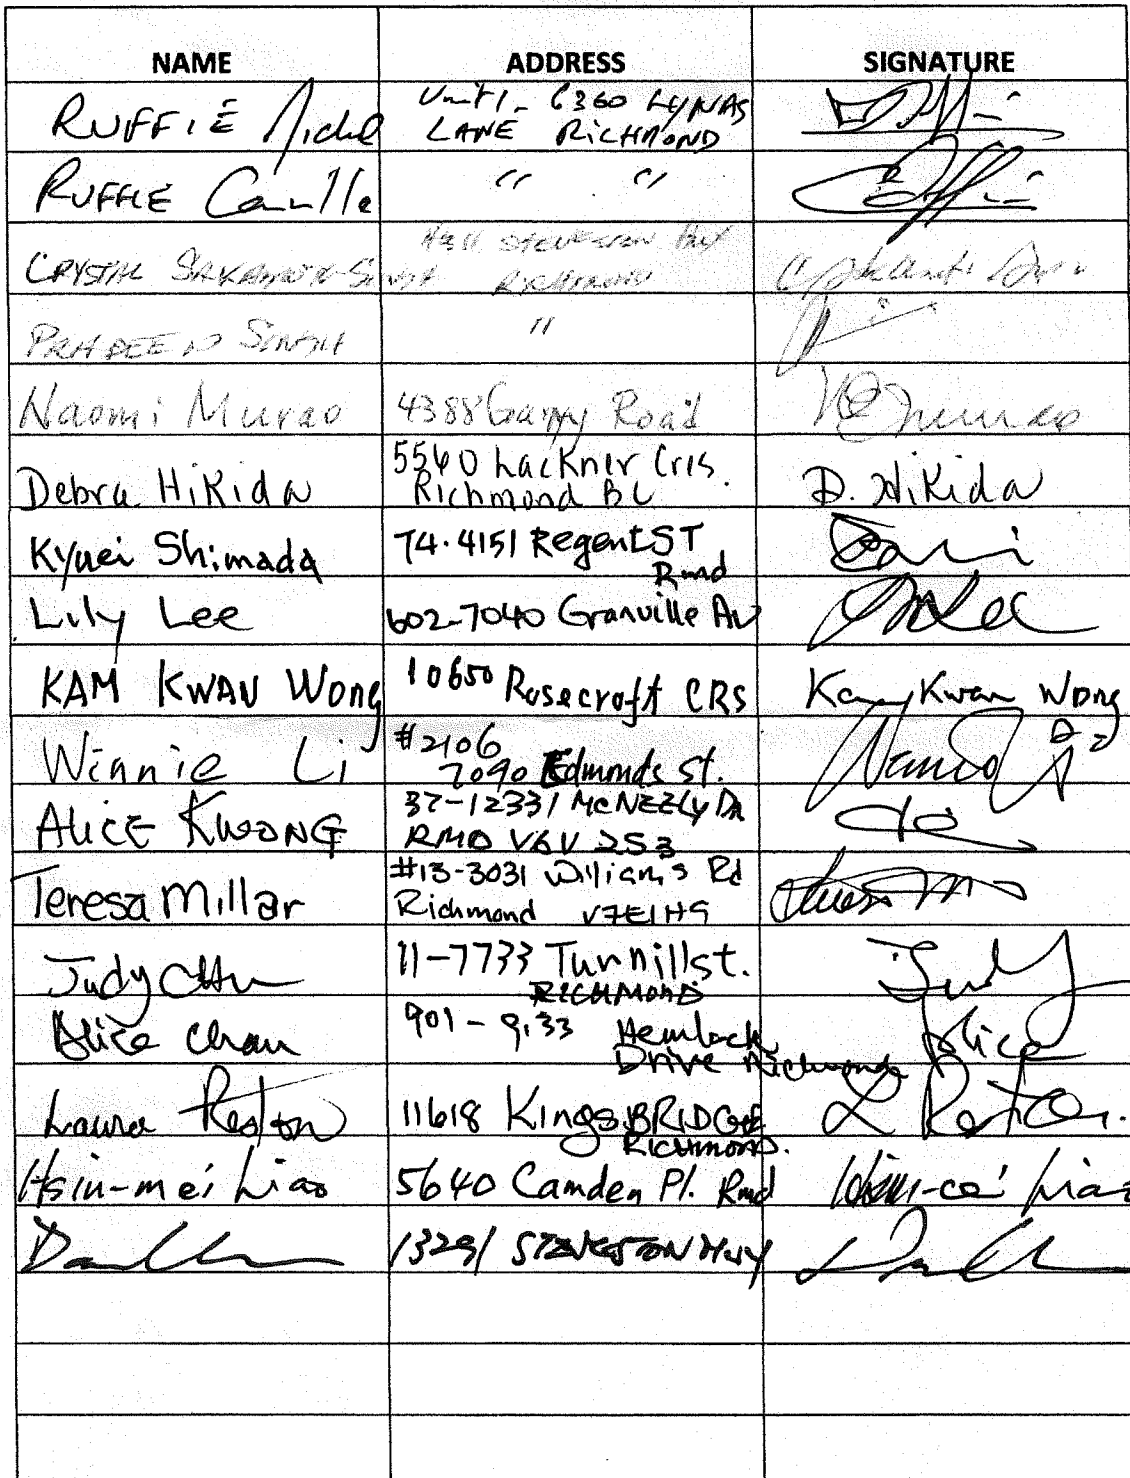 NAME ADDRESS SIGNATURE
RUFFIE Michel Unit 1- 6360 LYNAS
LANE RICHMOND
RUFFLE Camille " "
CRYSTAL
RICHMOND
PRABEEN "
Naomi Murao 4388 Garry Road
Debra Hikida 5540 Lackner Cris. D. Hikida
Richmond BC
Kyuei Shimada 74-4151 Regent ST
Rmd
Lily Lee 602-7040 Granville Av
KAM KWAN Wong 10650 Rosecroft CRS Kam Kwan Wong
Winnie Li #2106
7090 Edmonds St.
ALICE KWONG 37-12331 McNEELY DR
RMD V6V 2S3
Teresa Millar #13-3031 Williams Rd
Richmond V7E1H9
Judy Chu 11-7733 Turnill st. Judy
RICHMOND
Alice Chan 901- Hemlock Alice
Drive Richmond
Laura Reston 11618 KingsBRIDGE L Reston.
RICHMOND.
Hsiu-mei Liao 5640 Camden Pl. Rmd Liao
13291 STEVESTON HWY